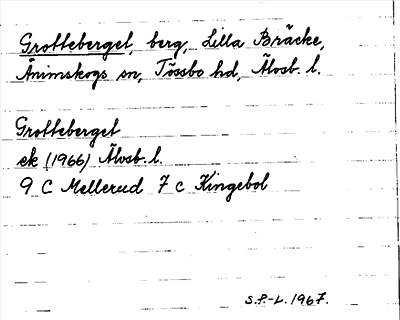 Grotteberget, berg, Lilla Bräcke,
Ånimskogs sn, Tössbo hd, Älvsb. l.
Grotteberget
ek (1966) Älvsb. l.
9 C Mellerud 7 c Kingebol
S.P.-L. 1967.